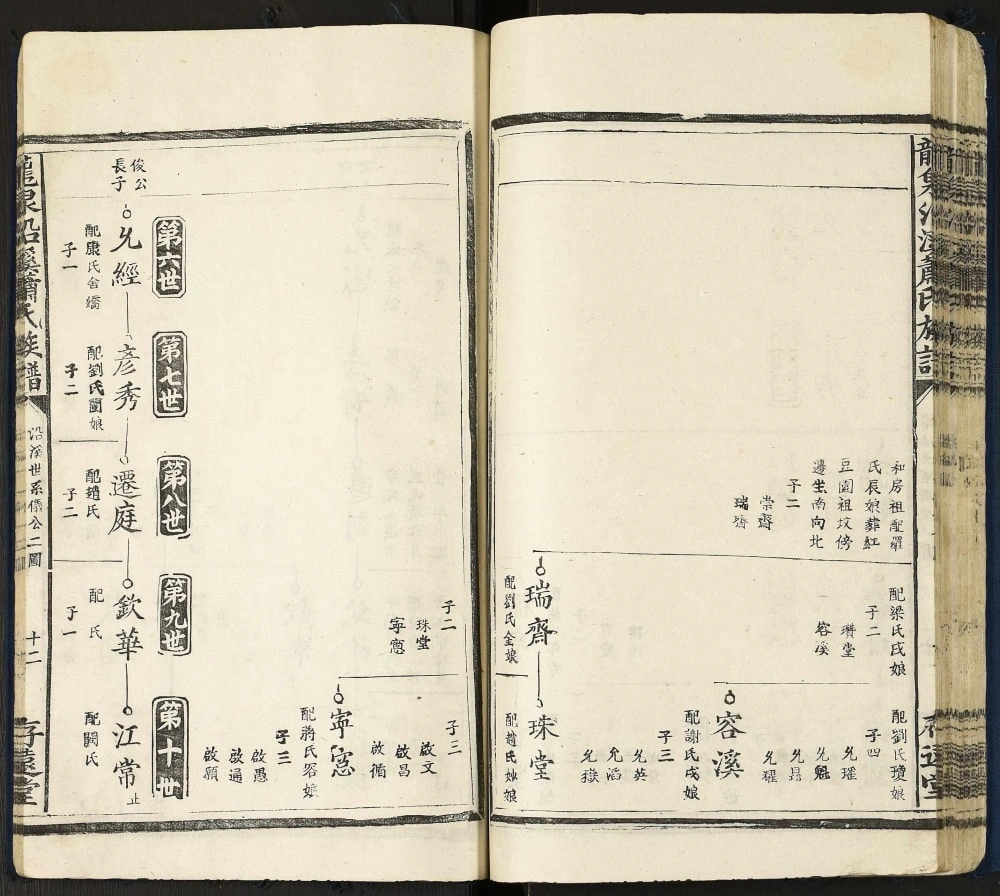 和房祖配羅
氏辰娘葬紅
豆園祖坟傍
邊坐南向北
子二
崇齋
瑞齋
配梁氏戌娘
子二
瓚堂
容溪
配劉氏瓊娘
子四
允瑾
允魁
允昂
允耀
容溪
配謝氏戌娘
子三
允英
允滔
允嶽
瑞齋
配劉氏金娘
子二
珠堂
寧㥶
珠堂
配趙氏妙娘
子三
啟文
啟昌
啟循
寧㥶
配蔣氏容娘
子三
啟愚
啟通
啟願
第六世
第七世
第八世
第九世
第十世
俊公
長子
允經
配康氏舍嬌
子一
彥秀
配劉氏蘭娘
子二
遷庭
配趙氏
子二
欽華
配 氏
子一
江常止
配闕氏
龍泉沿溪蕭氏族譜
沿溪世系儀公二圖
十二
存遠堂